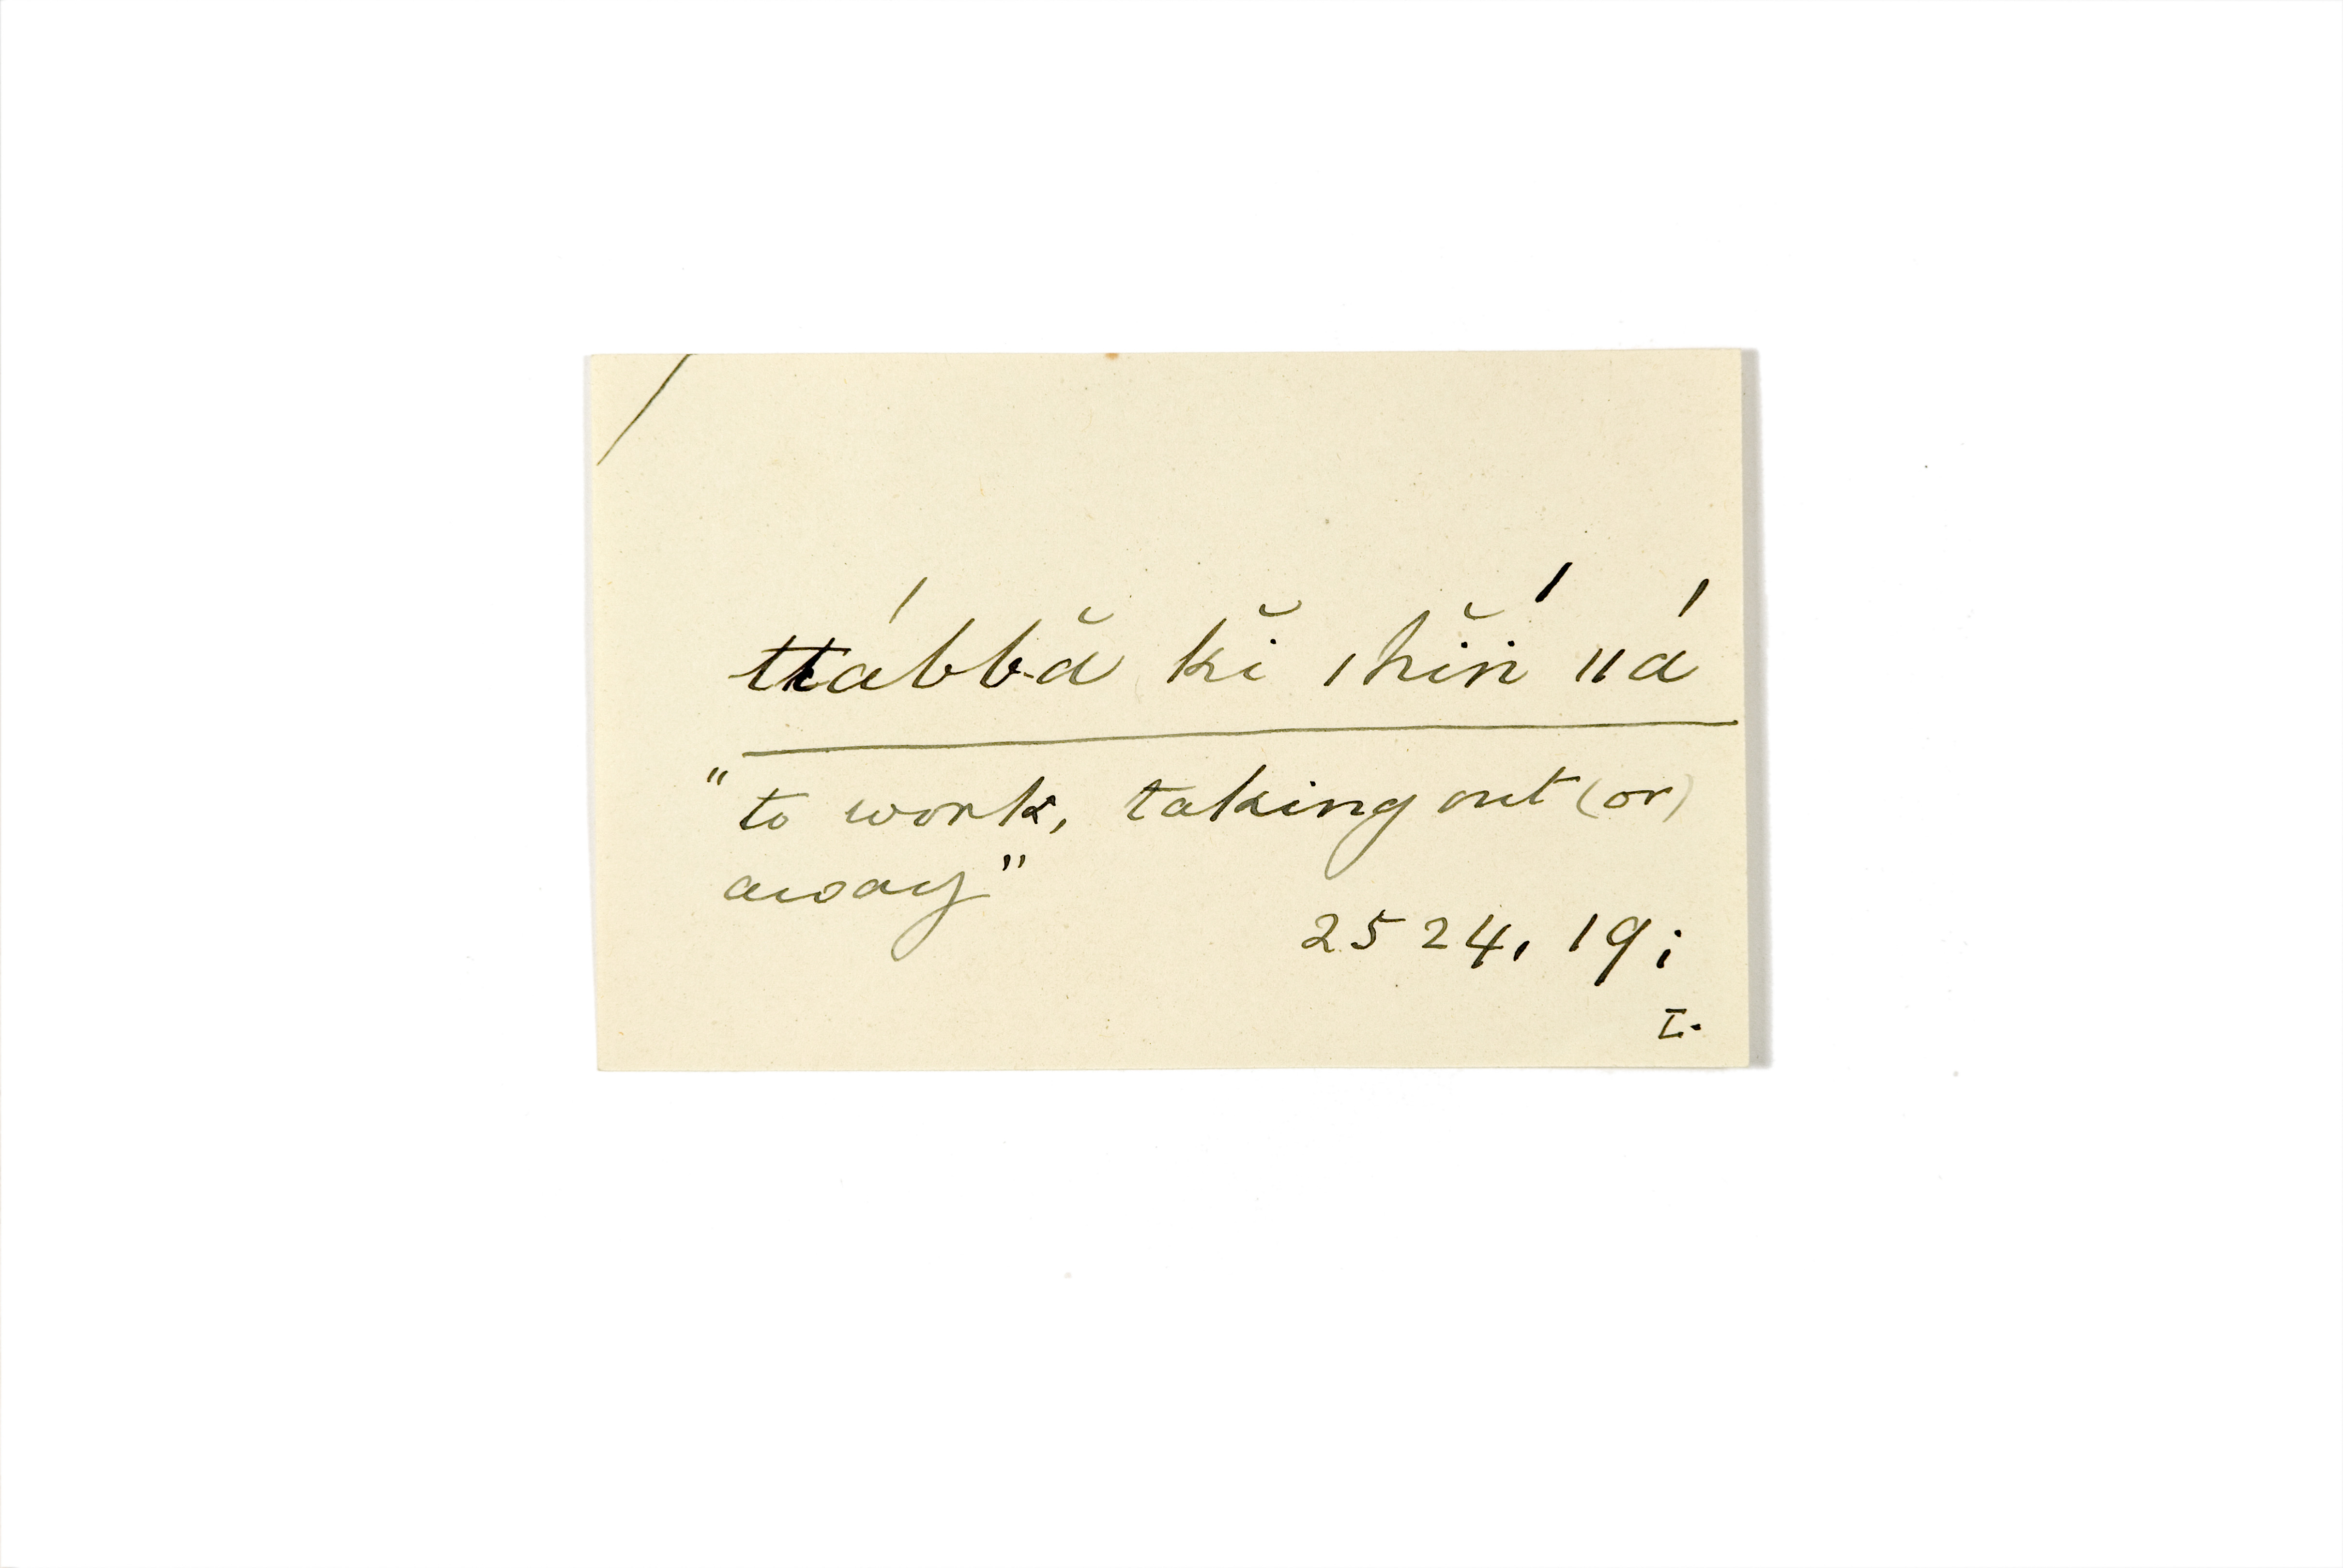 ttábbă kĭ ıhĭń ııá
"to work, taking out (or)
away"
2524, 19;
I.